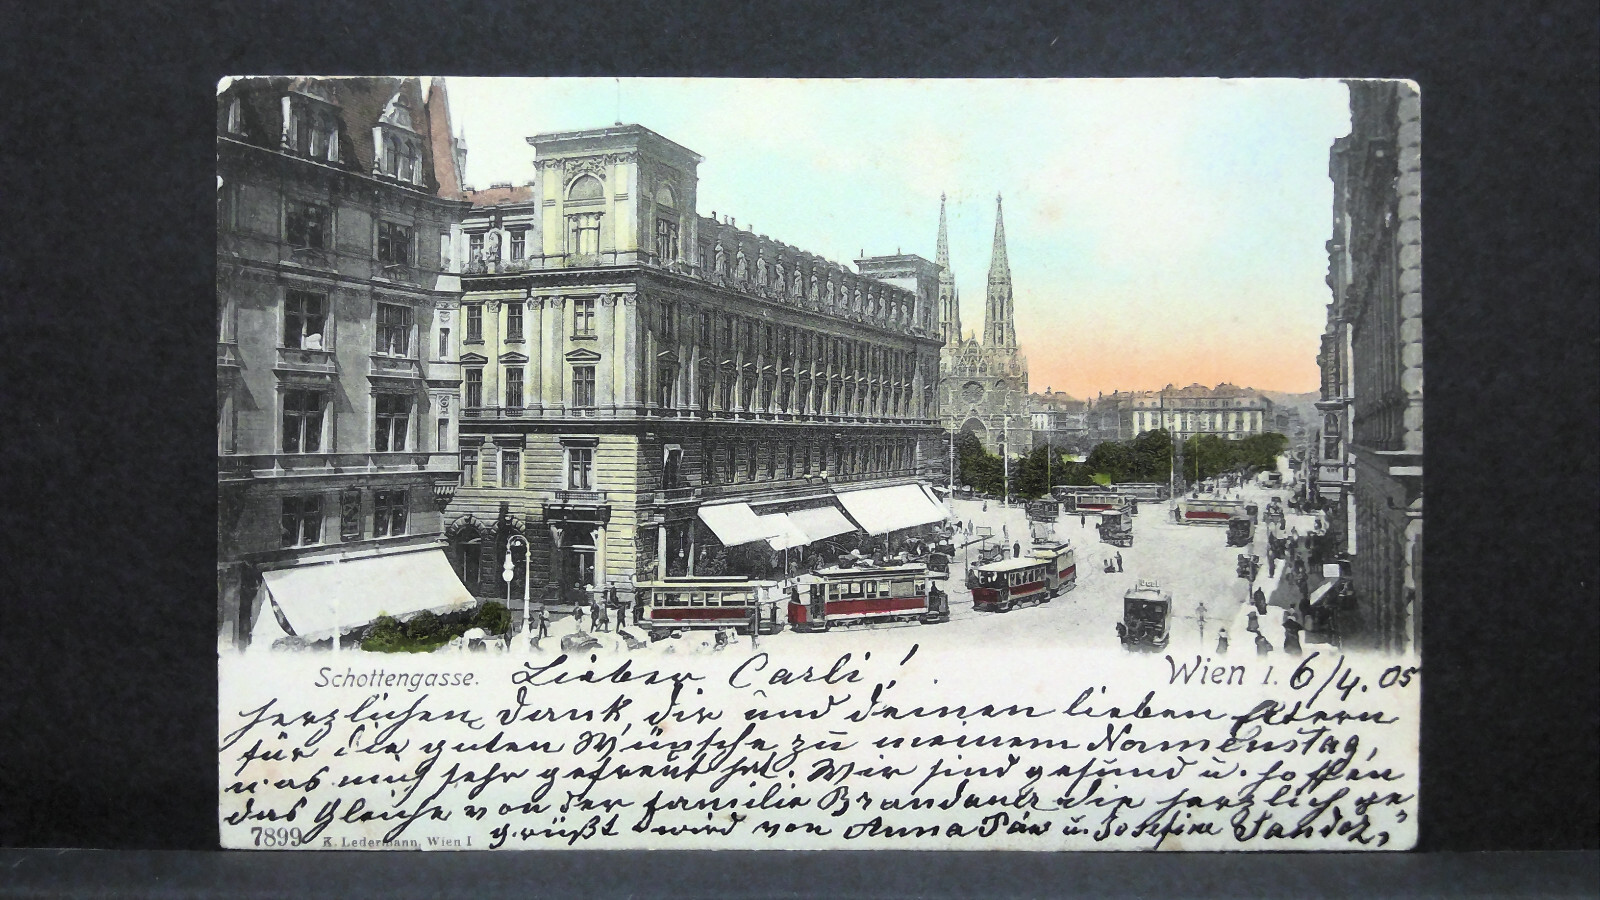 Schottengasse. Lieber Carli! Wien I. 6/4. 05
herzlichen Dank dir und deinen lieben Eltern
für die guten Wünsche zu meinem Namenstag,
was mich sehr gefreut hat. Wir sind gesund u. hoffen
das Gleiche von der Familie Brandauer die herzlich ge
grüßt wird von Anna u. Josefine
7899 K. Ledermann, Wien I